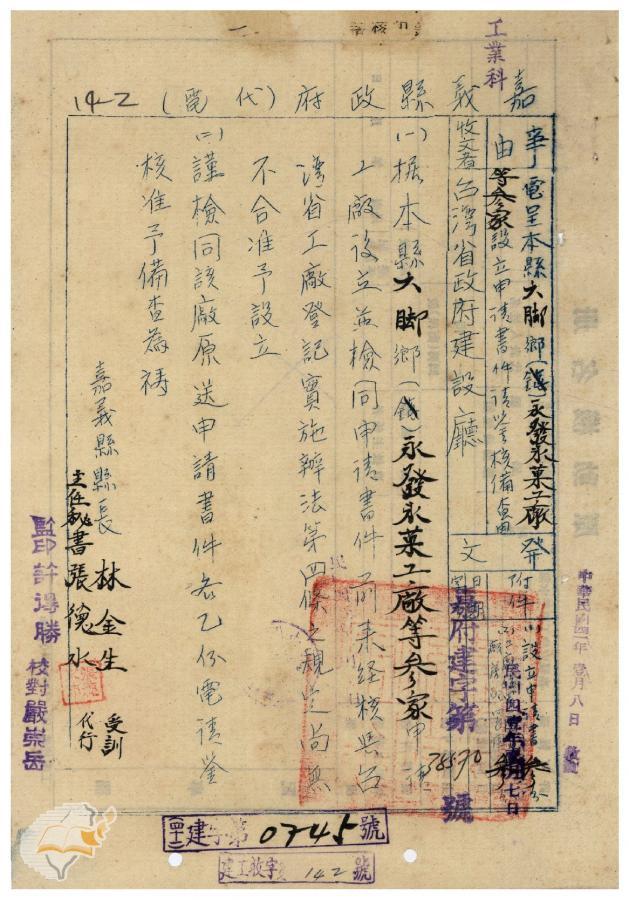 工業科
嘉義縣政府（代電）
14-2
事由 電呈本縣大脚鄉（鎮）永發氷菓工廠
等叄家設立申請書件請鉴核備查由
收文者 台灣省政府建設廳
發文
附件
日期
字號
設立申請書
嘉府建字第 38590 號
㈠據本縣大脚鄉（鎮）永發氷菓工廠等叄家申請
工廠設立並檢同申請書件前來経核與台
湾省工廠登記實施辦法第四條之規定尚無
不合准予設立
㈡謹檢同該廠原送申請書件各乙份電請鉴
核准予備查為禱
嘉義縣縣長 林金生 受訓
主任秘書 張德水 代行
監印 許得勝
校對 嚴崇岳
建字第 0745 號
建工收字 142 號